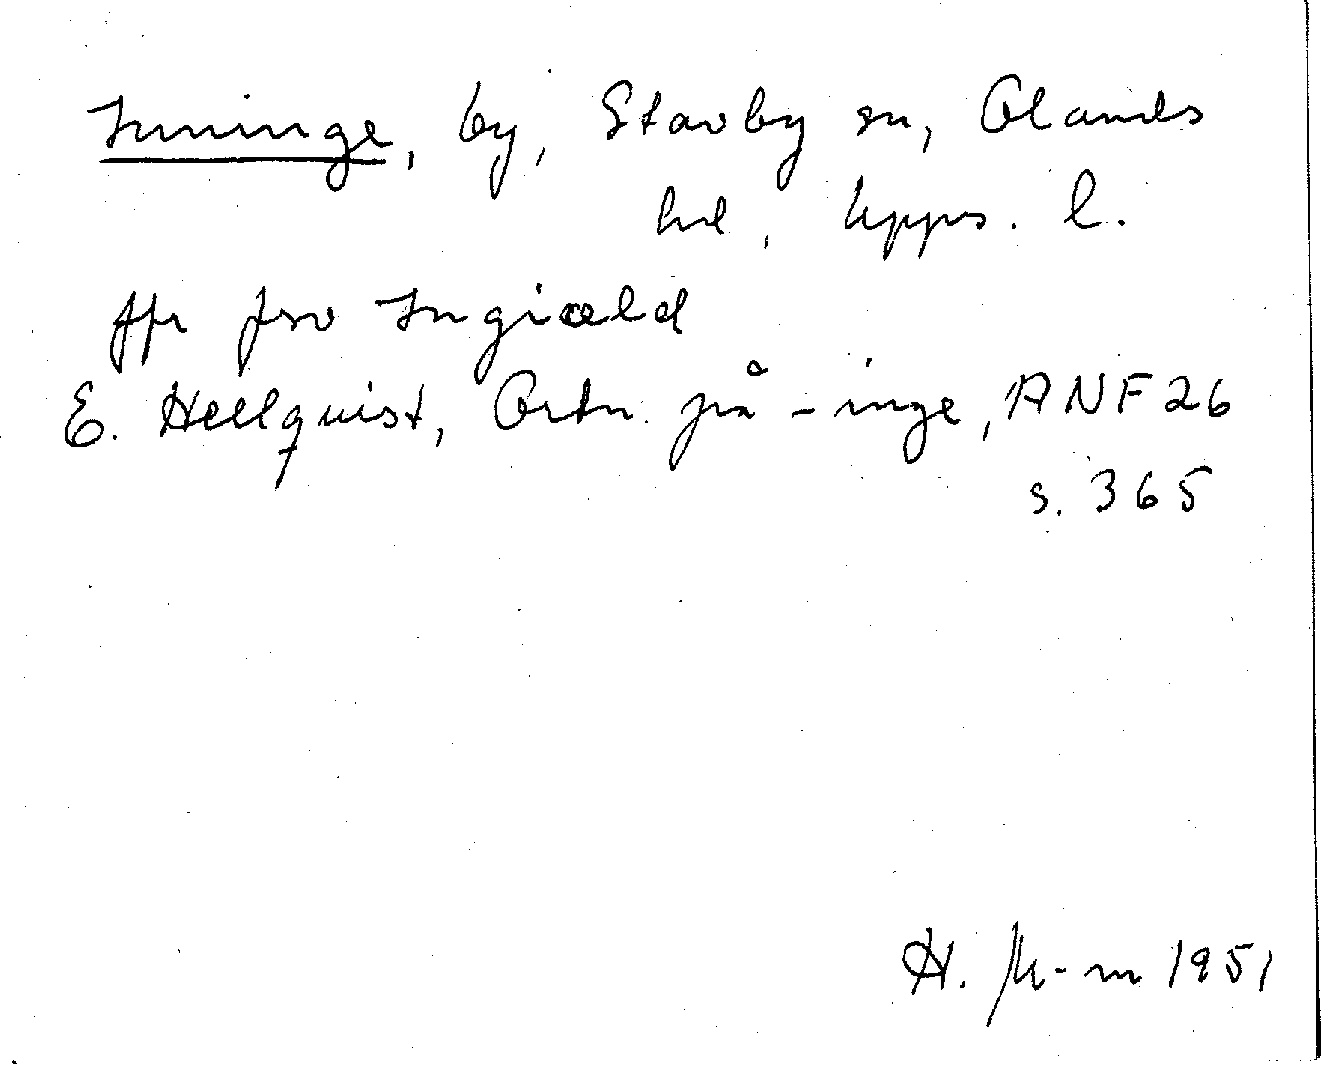 Inninge, by, Stavby sn, Olands
hd, Upps. l.
Jfr fsv Ingiæld
E. Hellquist, Ortn. på -inge, ANF 26
s. 365
H. M-m 1951